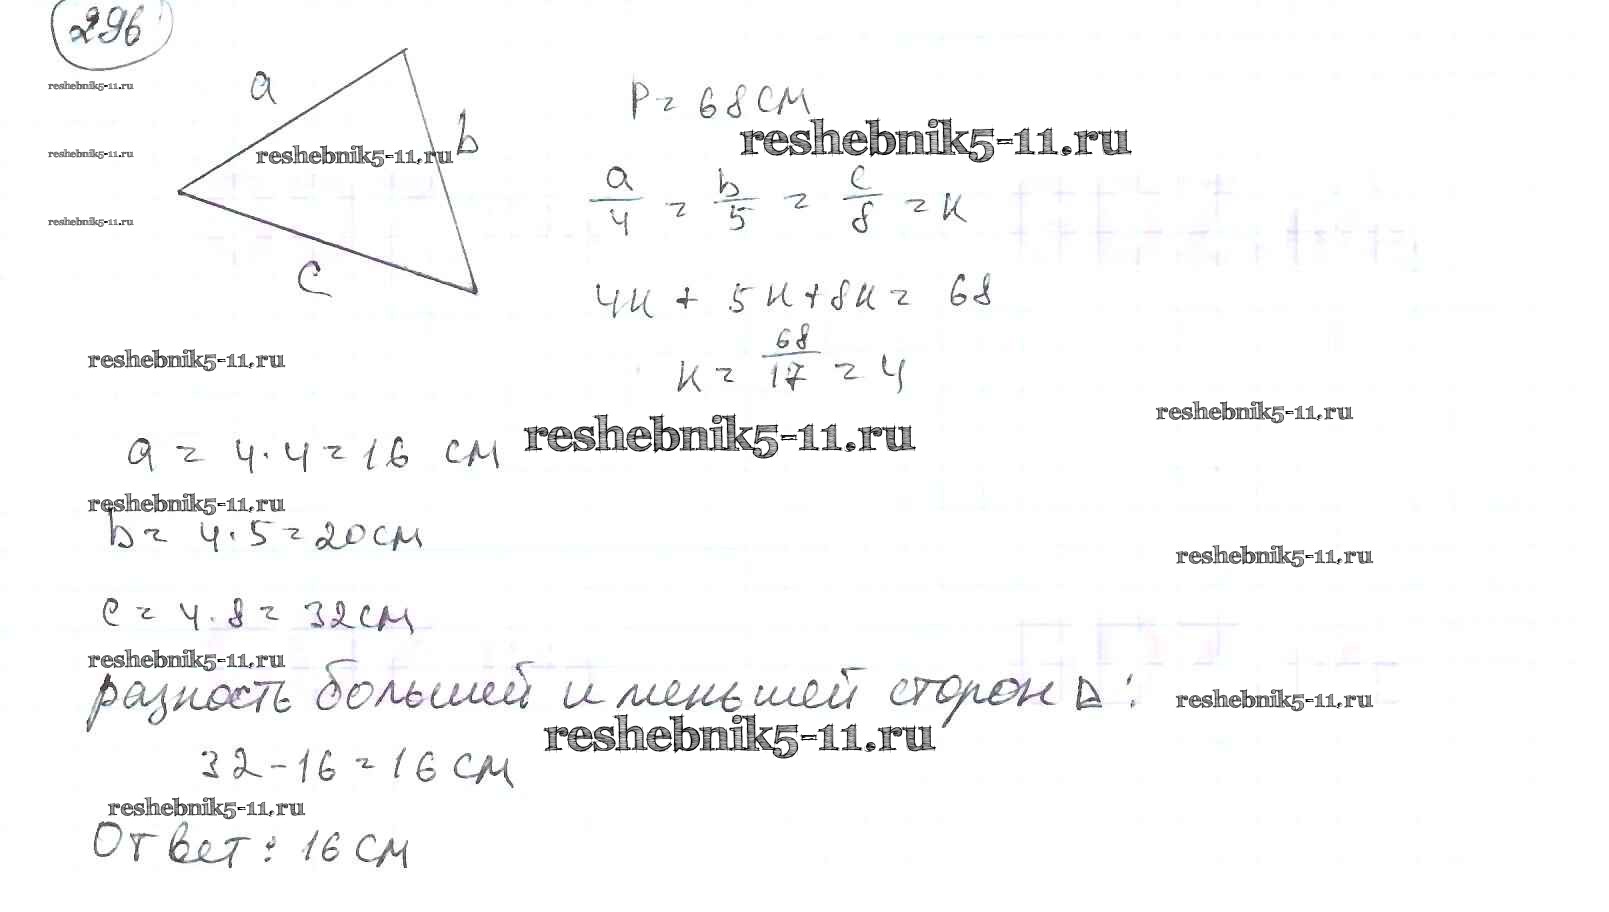 296
reshebnik5-11.ru
a
P = 68 см
reshebnik5-11.ru
b
reshebnik5-11.ru
reshebnik5-11.ru
a/4 = b/5 = c/8 = к
reshebnik5-11.ru
c
4к + 5к + 8к = 68
к = 68/17 = 4
reshebnik5-11.ru
reshebnik5-11.ru
a = 4·4 = 16 см
reshebnik5-11.ru
reshebnik5-11.ru
b = 4·5 = 20 см
reshebnik5-11.ru
c = 4·8 = 32 см
reshebnik5-11.ru
разность большей и меньшей сторон Δ:
reshebnik5-11.ru
reshebnik5-11.ru
32 - 16 = 16 см
reshebnik5-11.ru
Ответ: 16 см